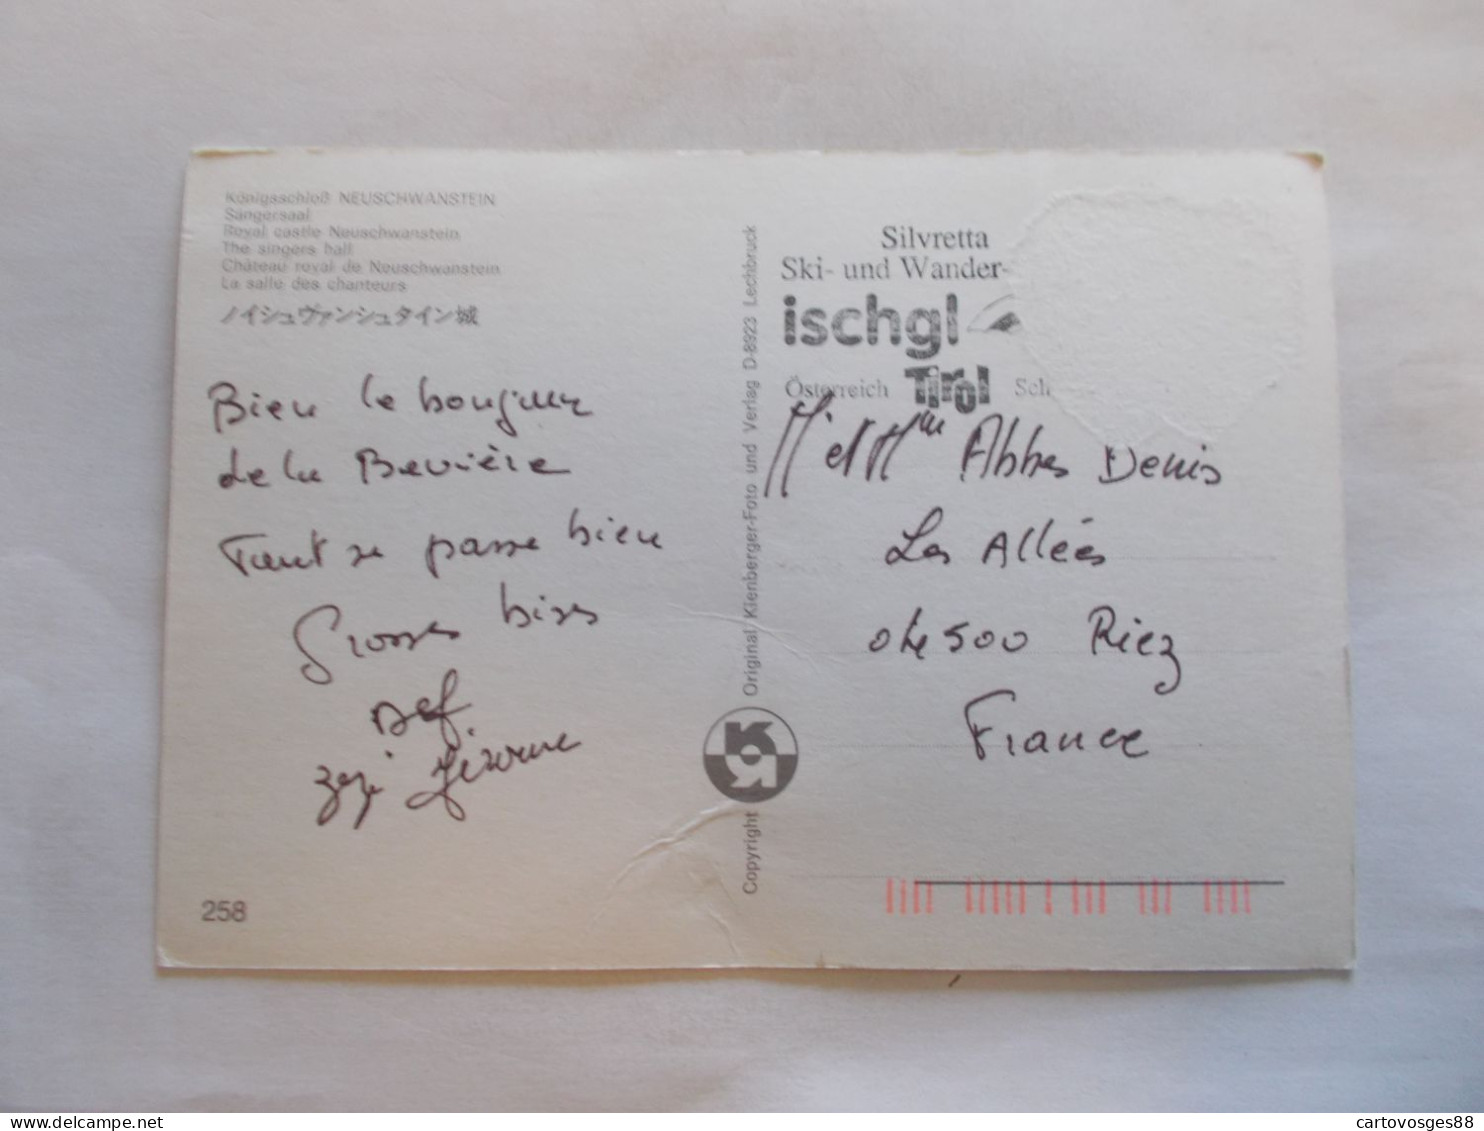 Königsschloß NEUSCHWANSTEIN
Sängersaal
Royal castle Neuschwanstein
The singers hall
Château royal de Neuschwanstein
La salle des chanteurs
ノイシュヴァンシュタイン城
Bien le bonjour
de la Bavière
Tout se passe bien
Grosses bises
Jérome
258
Copyright Original Kienberger-Foto und Verlag D-8923 Lechbruck
Silvretta
Ski- und Wander-
ischgl
Österreich Tirol Sch
M et Mme Abbes Denis
Les Allées
04500 Riez
France
delcampe.net
cartovosges88